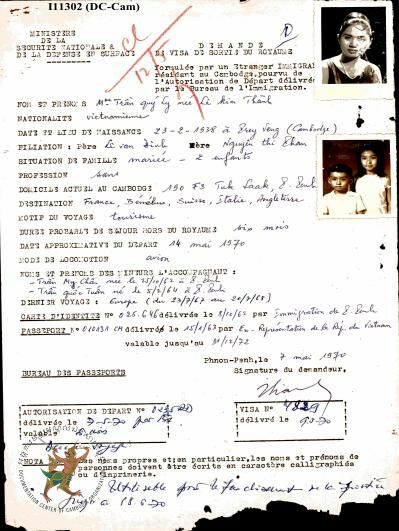 I11302 (DC-Cam)
MINISTERE
DE LA
SECURITE NATIONALE &
DE LA DEFENSE EN SURFACE
DEMANDE
DE VISA DE SORTIE DU ROYAUME
formulée par un Etranger IMMIGRE
résident au Cambodge, pourvu de
l'Autorisation de Départ délivrée
par le Bureau de l'Immigration.
NOM ET PRENOMS Mme Trần quý Ly née Lê Kim Thành
NATIONALITE vietnamienne
DATE ET LIEU DE NAISSANCE 23-2-1938 à Prey Vêng (Cambodge)
FILIATION : Père Lê van Dinh Mère Nguyễn thi Khan
SITUATION DE FAMILLE mariée - 2 enfants
PROFESSION sans
DOMICILE ACTUEL AU CAMBODGE 190 F3 Tuk Laak, P. Penh
DESTINATION France, Bénélux, Suisse, Italie, Angleterre
MOTIF DU VOYAGE tourisme
DUREE PROBABLE DE SEJOUR HORS DU ROYAUME six mois
DATE APPROXIMATIVE DU DEPART 14 mai 1970
MODE DE LOCOMOTION avion
NOMS ET PRENOMS DES MINEURS L'ACCOMPAGNANT :
- Trần My Châu née le 25/10/62 à P. Penh
- Trần quốc Tuấn né le 5/2/64 à P. Penh
DERNIER VOYAGE : Europe (du 23/7/67 au 20/7/68)
CARTE D'IDENTITE N° 026.646 délivrée le 8/10/62 par Immigration de P. Penh
PASSEPORT N° 010131 CM délivré le 15/1/67 par Ex-Représentation de la Rép. du Vietnam
valable jusqu'au 31/12/72
Phnom-Penh, le 7 mai 1970
Signature du demandeur,
BUREAU DES PASSEPORTS
AUTORISATION DE DEPART N°
délivrée le 7-5-70 par
valable 6 mois
VISA N° 4829
délivré le 9-5-70
NOTA : Les noms propres et, en particulier, les noms et prénoms de
personnes doivent être écrits en caractère calligraphiés
ou d'imprimerie.
Utilisable pour le franchissement de la frontière
jusqu'à 18-6-70
DOCUMENTATION CENTER OF CAMBODIA